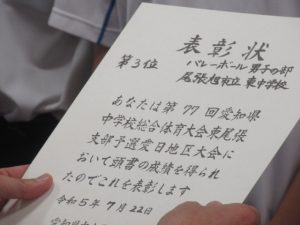 表彰状
第3位 バレーボール 男子の部
尾張旭市立 東中学校
あなたは第77回愛知県
中学校総合体育大会東尾張
支部予選愛日地区大会に
おいて頭書の成績を得られ
たのでこれを表彰します
令和5年7月22日